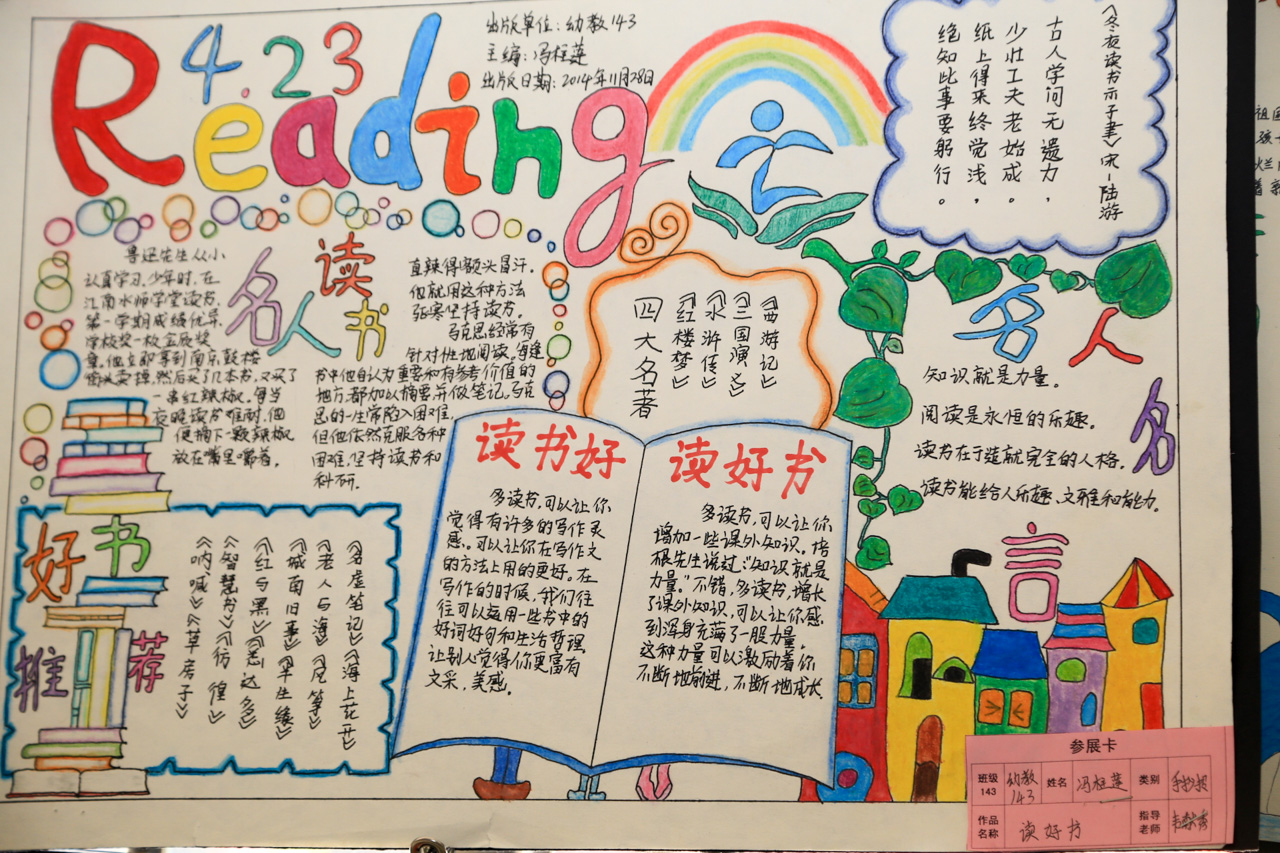 423
Reading
出版单位：幼教143
主编：冯桂莲
出版日期：2014年11月28日
《冬夜读书示子聿》宋-陆游
古人学问无遗力，
少壮工夫老始成。
纸上得来终觉浅，
绝知此事要躬行。
名人读书
鲁迅先生从小
认真学习。少年时，在
江南水师学堂读书，
第一学期成绩优异，
学校奖一枚金质奖
章。他立即拿到南京鼓楼
街头卖掉，然后买了几本书，又买了
一串红辣椒。每当
夜晚读书难耐时，他
便摘下一颗辣椒，
放在嘴里嚼着，
直辣得额头冒汗。
他就用这种方法
驱寒坚持读书。
马克思经常有
针对性地阅读。每逢
书中他自认为重要和有参考价值的
地方，都加以摘要，并做笔记。马克
思的一生常陷入困难，
但他依然克服各种
困难，坚持读书和
科研。
四大名著
《红楼梦》
《水浒传》
《三国演义》
《西游记》
名人名言
知识就是力量。
阅读是永恒的乐趣。
读书在于造就完全的人格。
读书能给人乐趣、文雅和能力。
好书推荐
《名虚笔记》《海上花开》
《老人与海》《凡筝》
《城南旧事》《半生缘》
《红与黑》《悉达多》
《智慧书》《彷徨》
《呐喊》《草房子》
读书好
多读书，可以让你
觉得有许多的写作灵
感。可以让你在写作文
的方法上用的更好。在
写作的时候，我们往
往可以运用一些书中的
好词好句和生活哲理。
让别人觉得你更富有
文采，美感。
读好书
多读书，可以让你
增加一些课外知识。培
根先生说过："知识就是
力量。"不错，多读书，增长
了课外知识，可以让你感
到浑身充满了一股力量。
这种力量可以激励着你
不断地前进，不断地成长
参展卡
班级 143 幼教143 姓名 冯桂莲 类别 手抄报
作品名称 读好书 指导老师